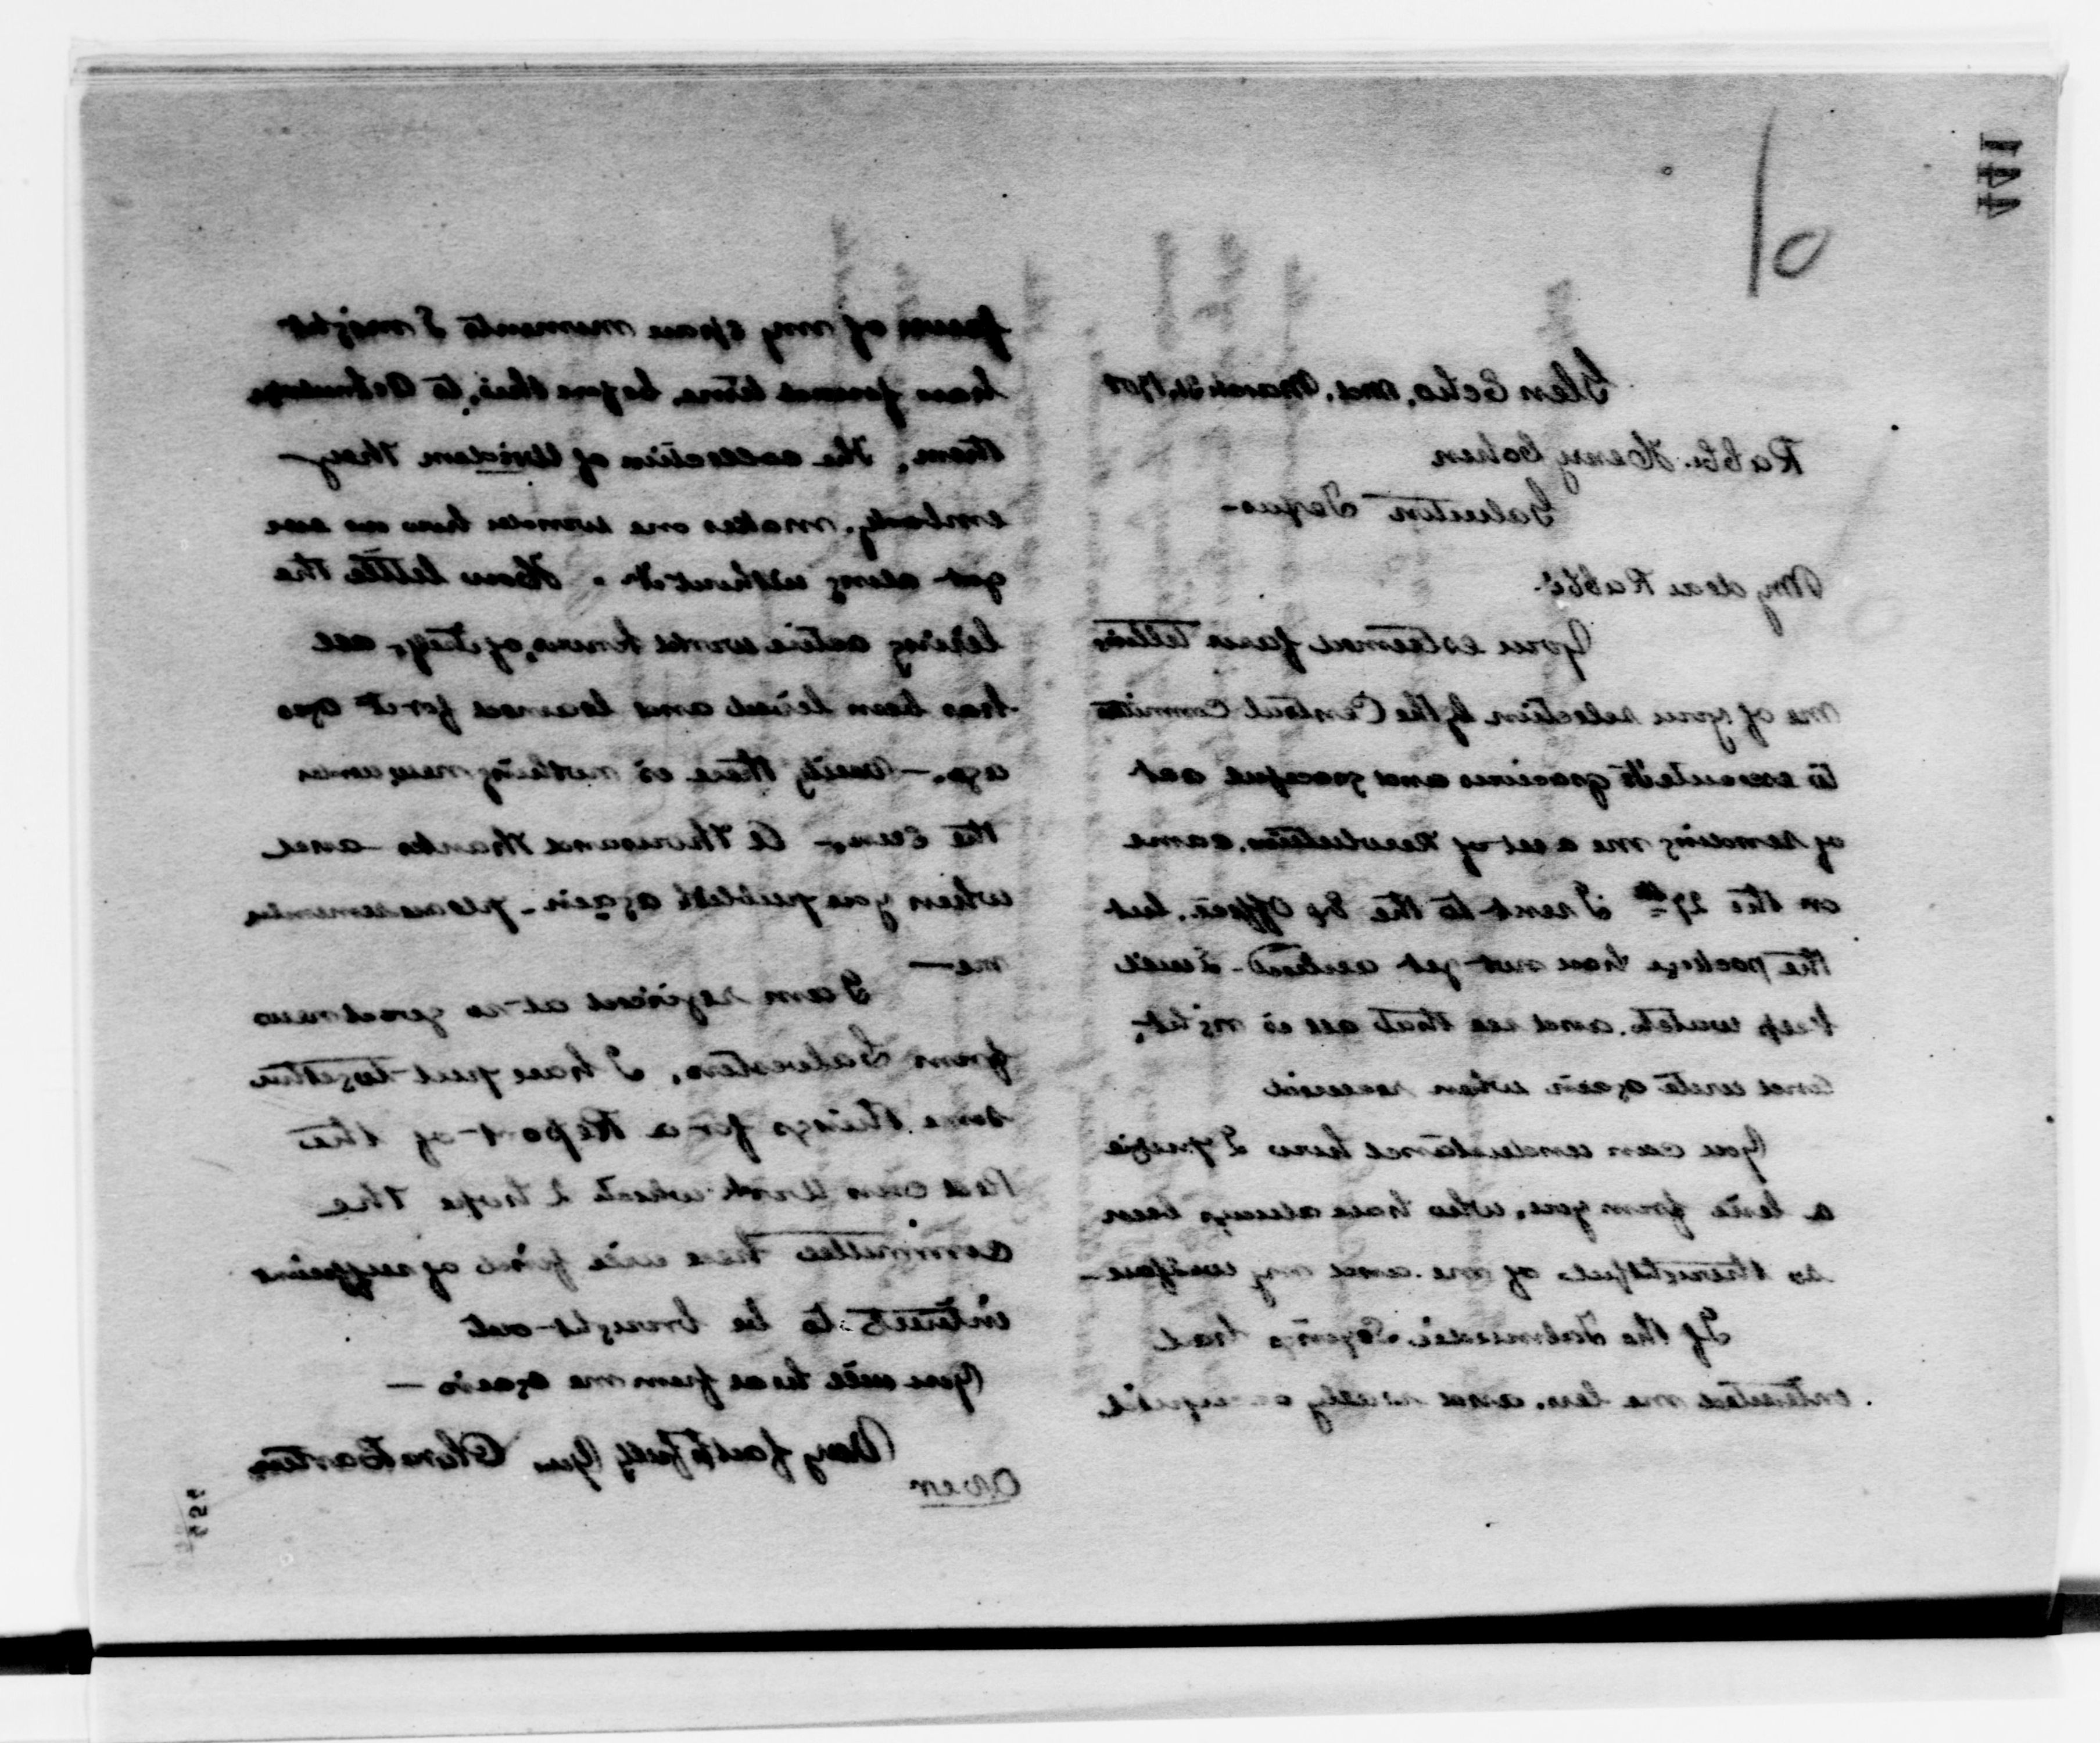 144
Glen Echo, Md. March 31, 1901
Rabbi. Henry Cohen
Galveston Texas -
My dear Rabbi.
Your esteemed favor telling
me of your selection by the Central Committee
to execute its gracious and graceful act
of sending me a set of Resolutions, came
on the 29th I sent to the Ex Office, but
the package has not yet arrived - I will
keep watch, and see that all is right,
and write again when received
You can understand how I prize
a line from you, who have always been
so thoughtful of me and my welfare -
If the Talmudic Sayings had
interested me less, and really occupied
fewer of my spare moments I might
have found time, before this, to acknowledge
them. The collection of Wisdom they
embody, makes one wonder how we ever
got along without it. How little the
living active world knows, of itself, all
has been lived and learned for it ages
ago. - Truly, there is nothing new under
the sun, - A thousand thanks - and
when you publish again - please remember
me —
I am rejoiced at so good news
from Galveston, I have put together
some things for a Report of the
Red Cross work which I hope the
committee here will find of sufficient
interest to be brought out
You will hear from me again —
Very faithfully Yours Clara Barton
over